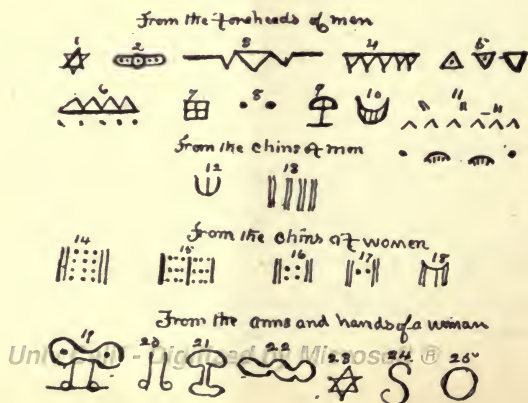 From the foreheads of men
1 2 3 4 5
6 7 8 9 10 11
From the chins of men
12 13
From the chins of women
14 15 16 17 18
From the arms and hands of a woman
19 20 21 22 23 24 25
Univ Calif - Digitized by Microsoft ®